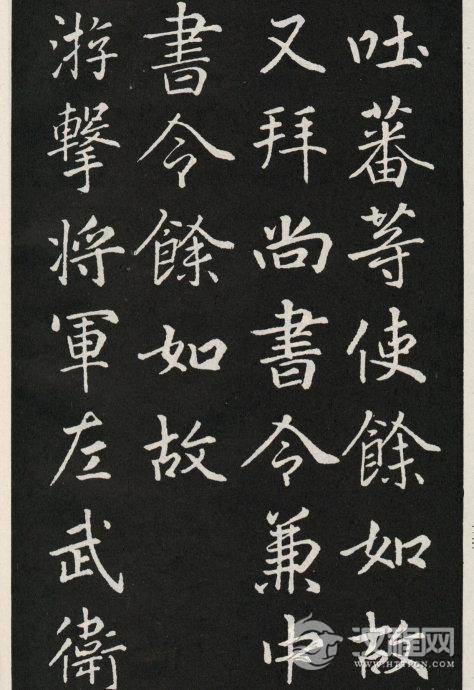 吐蕃等使餘如故
又拜尚書令兼中
書令餘如故
游擊將軍左武衛
汉程网
WWW.HTTPCN.COM